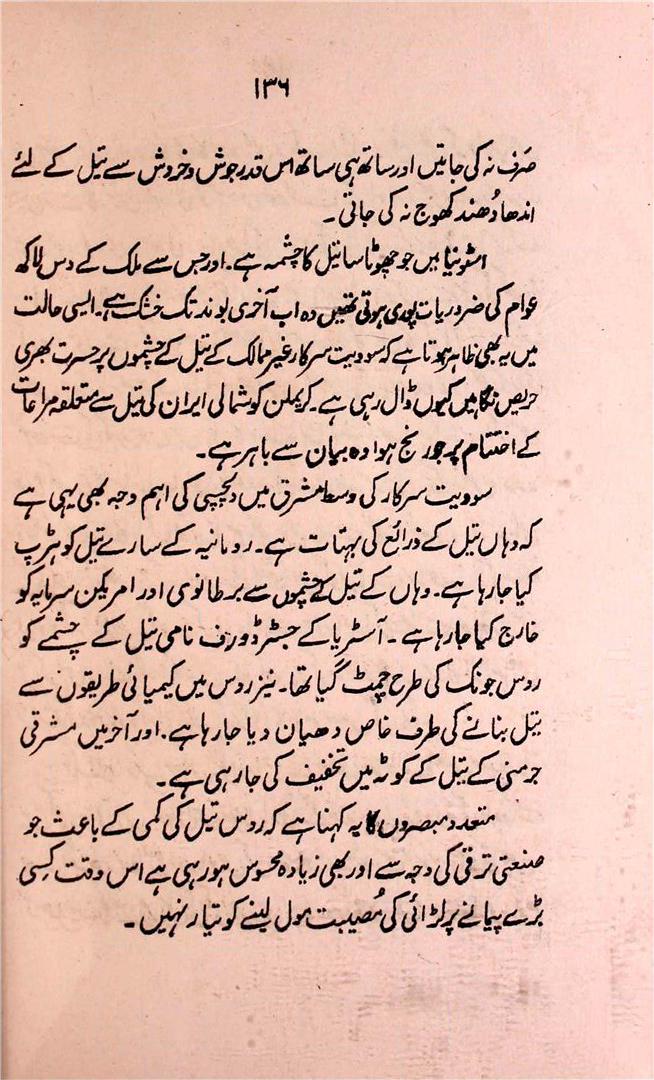 ۱۳۶
صَرف نہ کی جاتیں اور ساتھ ہی ساتھ اس قدر جوش و خروش سے تیل کے لئے
اندھا دُھند کھوج نہ کی جاتی ۔
اسٹونیا میں جو چھوٹا سا تیل کا چشمہ ہے ۔ اور جس سے ملک کے دس لاکھ
عوام کی ضروریات پوری ہوتی تھیں وہ اب آخری بوند تک خشک ہے ۔ ایسی حالت
میں یہ بھی ظاہر ہوتا ہے کہ سوویت سرکار غیر ممالک کے تیل کے چشموں پر حسرت بھری
حریص نگاہیں کیوں ڈال رہی ہے ۔ کریملن کو شمالی ایران کی تیل سے متعلقہ مراعات
کے اختتام پر جو رنج ہوا وہ بیان سے باہر ہے ۔
سوویت سرکار کی وسط مشرق میں دلچسپی کی اہم وجہ بھی یہی ہے
کہ وہاں تیل کے ذرائع کی بہتات ہے ۔ رومانیہ کے سارے تیل کو ہڑپ
کیا جا رہا ہے ۔ وہاں کے تیل کے چشموں سے برطانوی اور امریکن سرمایہ کو
خارج کیا جا رہا ہے ۔ آسٹریا کے جسٹرڈورف نامی تیل کے چشمے کو
روس جونک کی طرح چمٹ گیا تھا ۔ نیز روس میں کیمیائی طریقوں سے
تیل بنانے کی طرف خاص دھیان دیا جا رہا ہے ۔ اور آخر میں مشرقی
جرمنی کے تیل کے کوٹہ میں تخفیف کی جا رہی ہے ۔
متعدد مبصروں کا یہ کہنا ہے کہ روس تیل کی کمی کے باعث جو
صنعتی ترقی کی وجہ سے اور بھی زیادہ محسوس ہو رہی ہے اس وقت کِسی
بڑے پیمانے پر لڑائی کی مُصیبت مول لینے کو تیار نہیں ۔